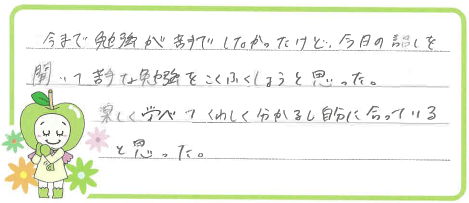 今まで勉強が苦手でしたかったけど、今日の話しを
聞いて苦手な勉強をこくふくしようと思った。
楽しく学べてくわしく分かるし自分に合っている
と思った。